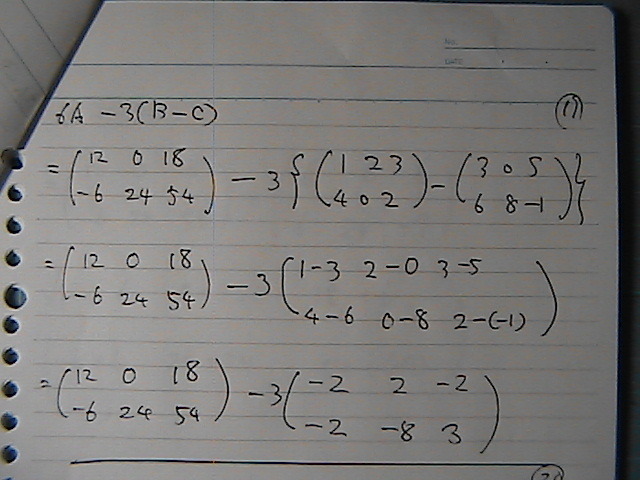 NO.
DATE
6A - 3(B - C) (1)
= (12 0 18
-6 24 54) - 3{(1 2 3
4 0 2) - (3 0 5
6 8 -1)}
= (12 0 18
-6 24 54) - 3(1-3 2-0 3-5
4-6 0-8 2-(-1))
= (12 0 18
-6 24 54) - 3(-2 2 -2
-2 -8 3)